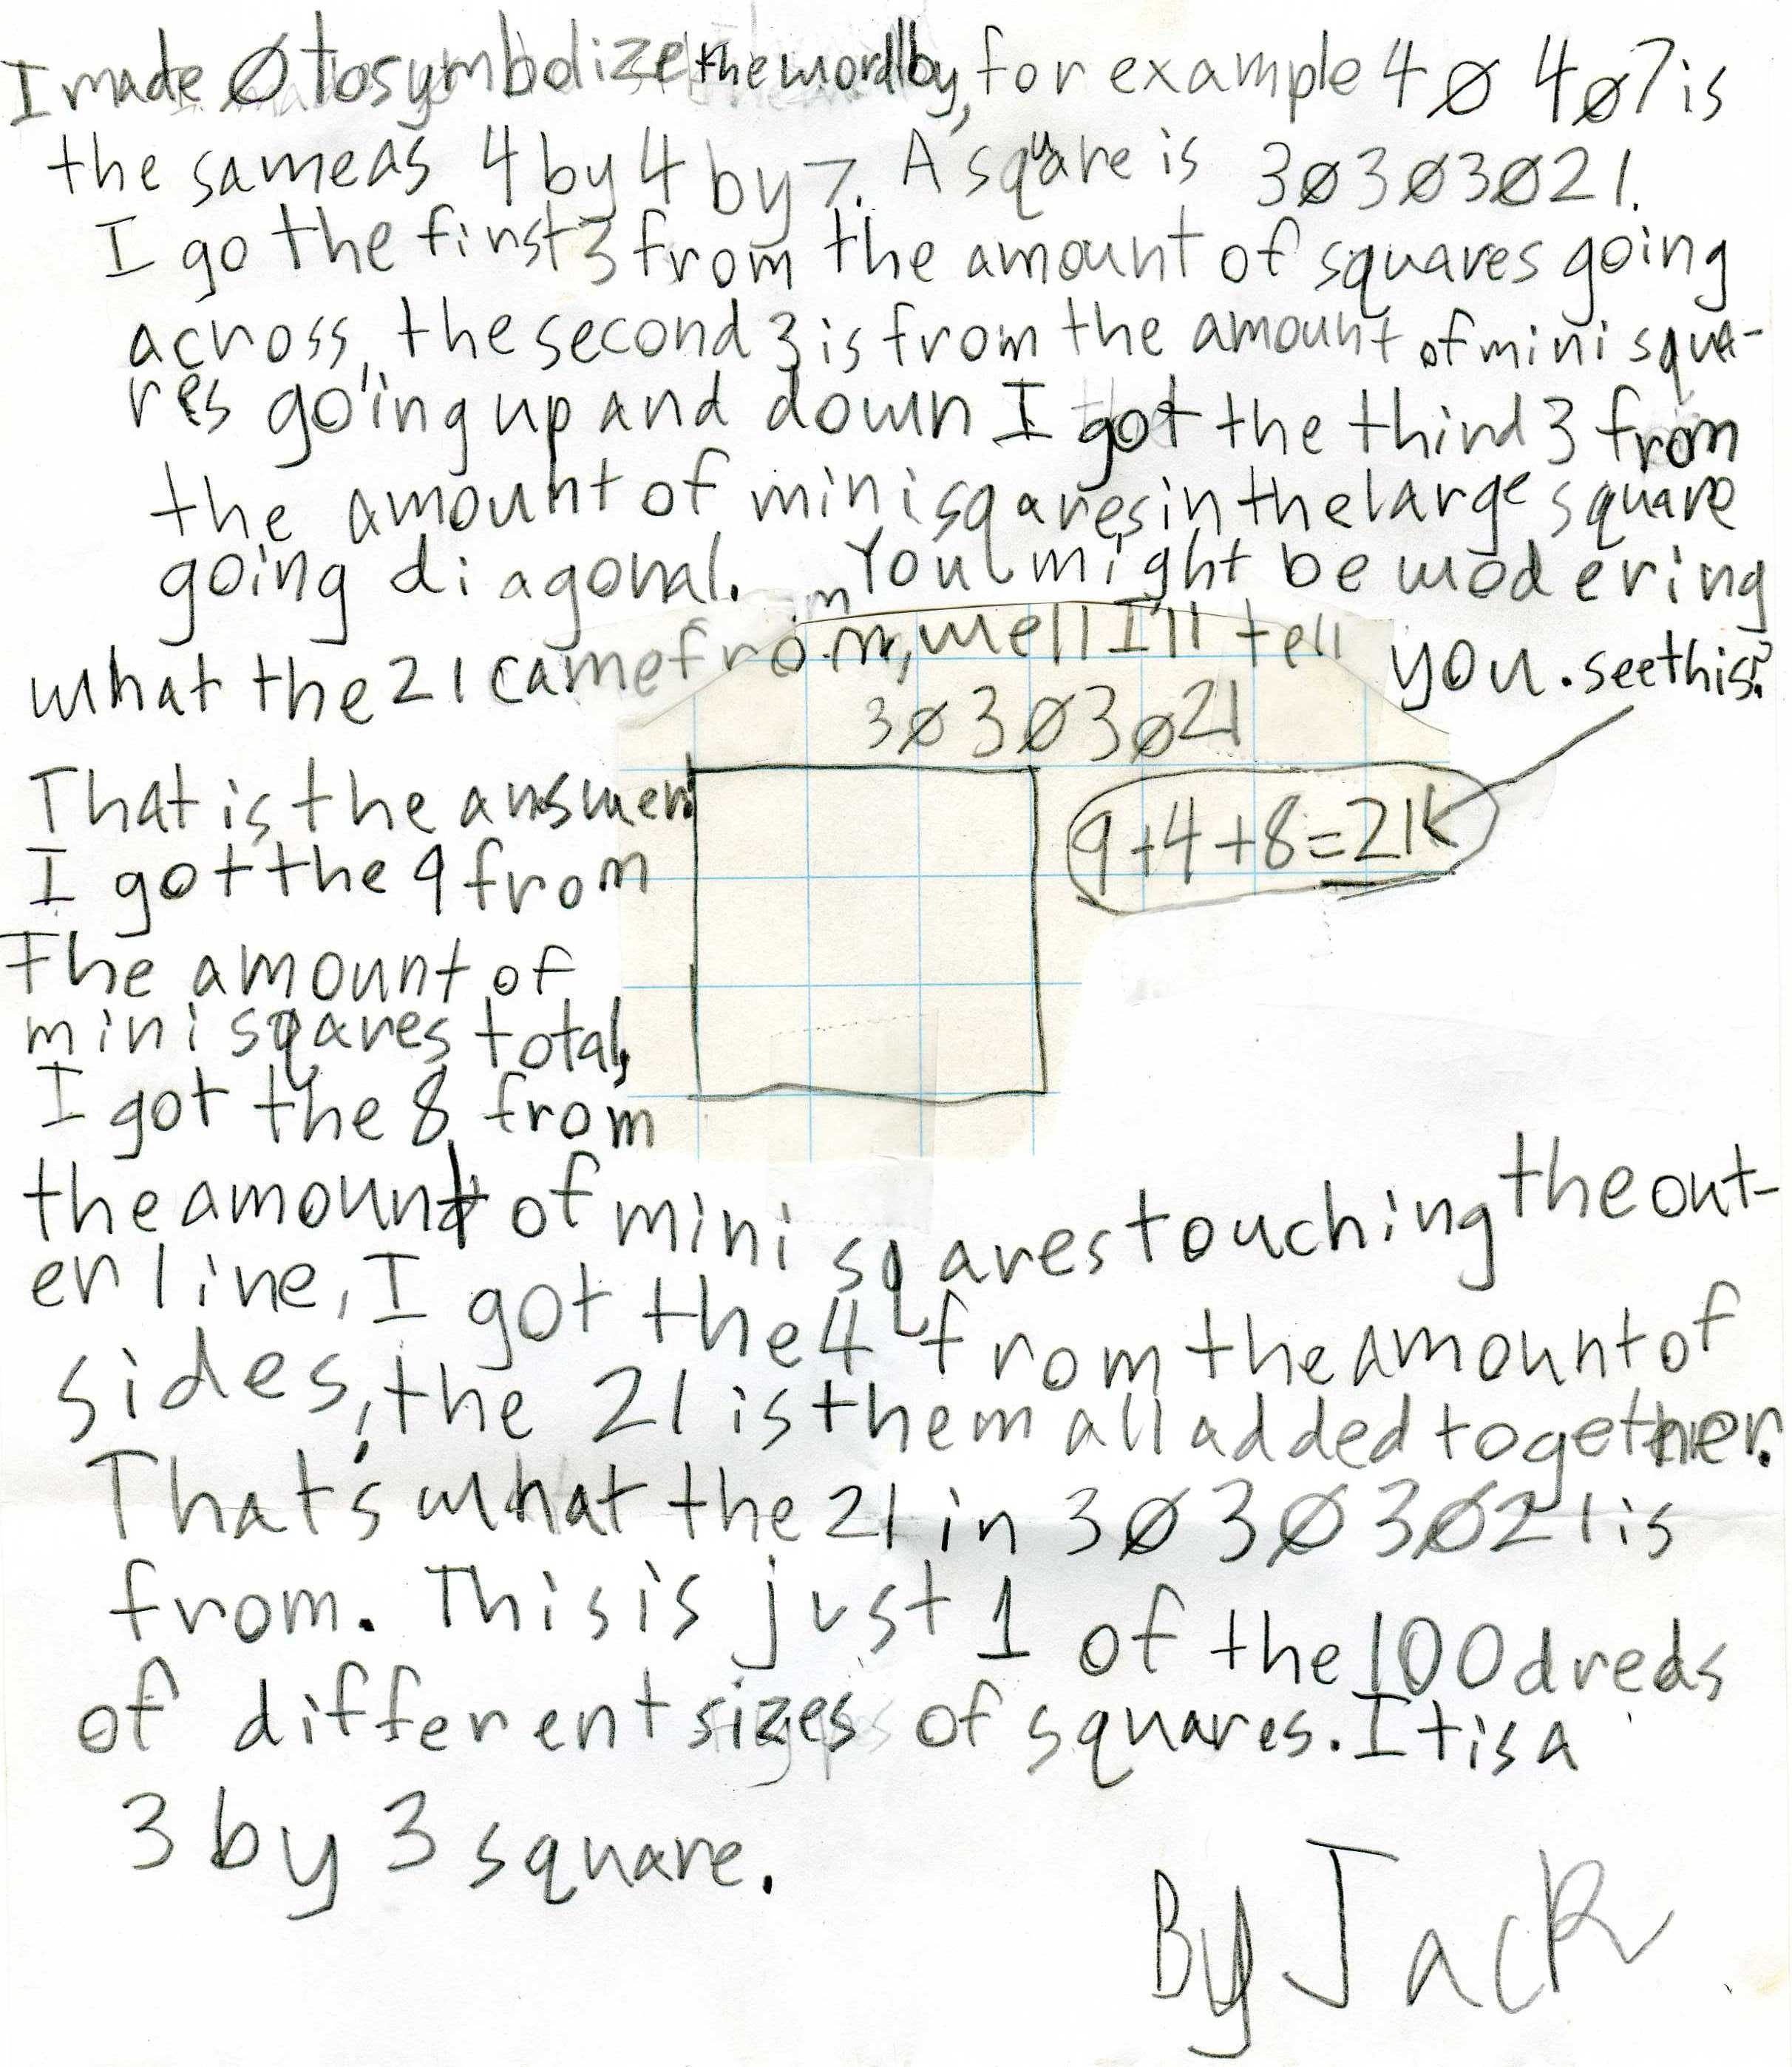 I made Ø to symbolize the word by, for example 4 Ø 4 Ø 7 is
the same as 4 by 4 by 7. A square is 3Ø3Ø3Ø21.
I go the first 3 from the amount of squares going
across, the second 3 is from the amount of mini squa-
res going up and down I got the third 3 from
the amount of mini sqares in the large square
going diagonal. You might be wodering
what the 21 came from, well I'll tell you. see this?
3Ø3Ø3Ø21
9+4+8=21
That is the answer.
I got the 9 from
the amount of
mini sqares total,
I got the 8 from
the amount of mini sqares touching the out-
er line, I got the 4 from the amount of
sides, the 21 is them all added together.
That's what the 21 in 3Ø3Ø3Ø21 is
from. This is just 1 of the 100dreds
of different sizes of squares. It is a
3 by 3 square.
By Jack